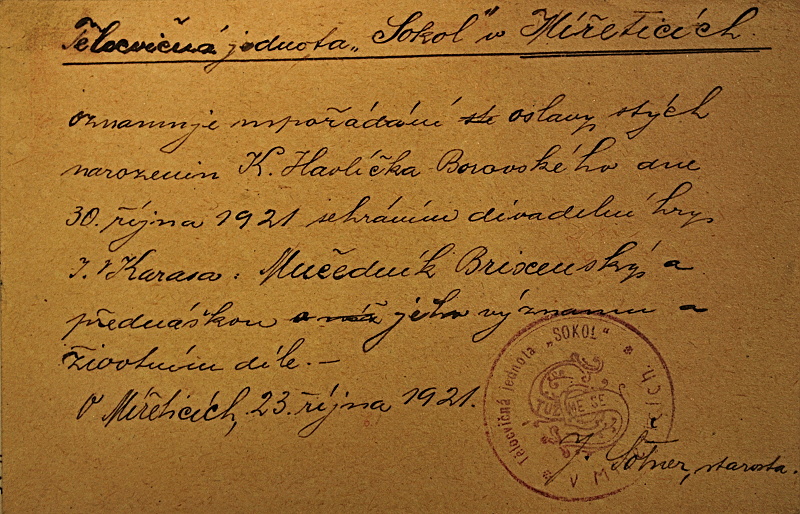 Tělocvičná jednota „Sokol“ v Miřeticích.
oznamuje uspořádání oslavy stých
narozenin K. Havlíčka Borovského dne
30. října 1921 sehráním divadelní hry
J. Karasa: Mučedník Brixenský, a
přednáškou o jeho významu a
životním díle.—
V Miřeticích, 23. října 1921.
Tělocvičná jednota „SOKOL“ * V M
TUŽME SE
starosta.